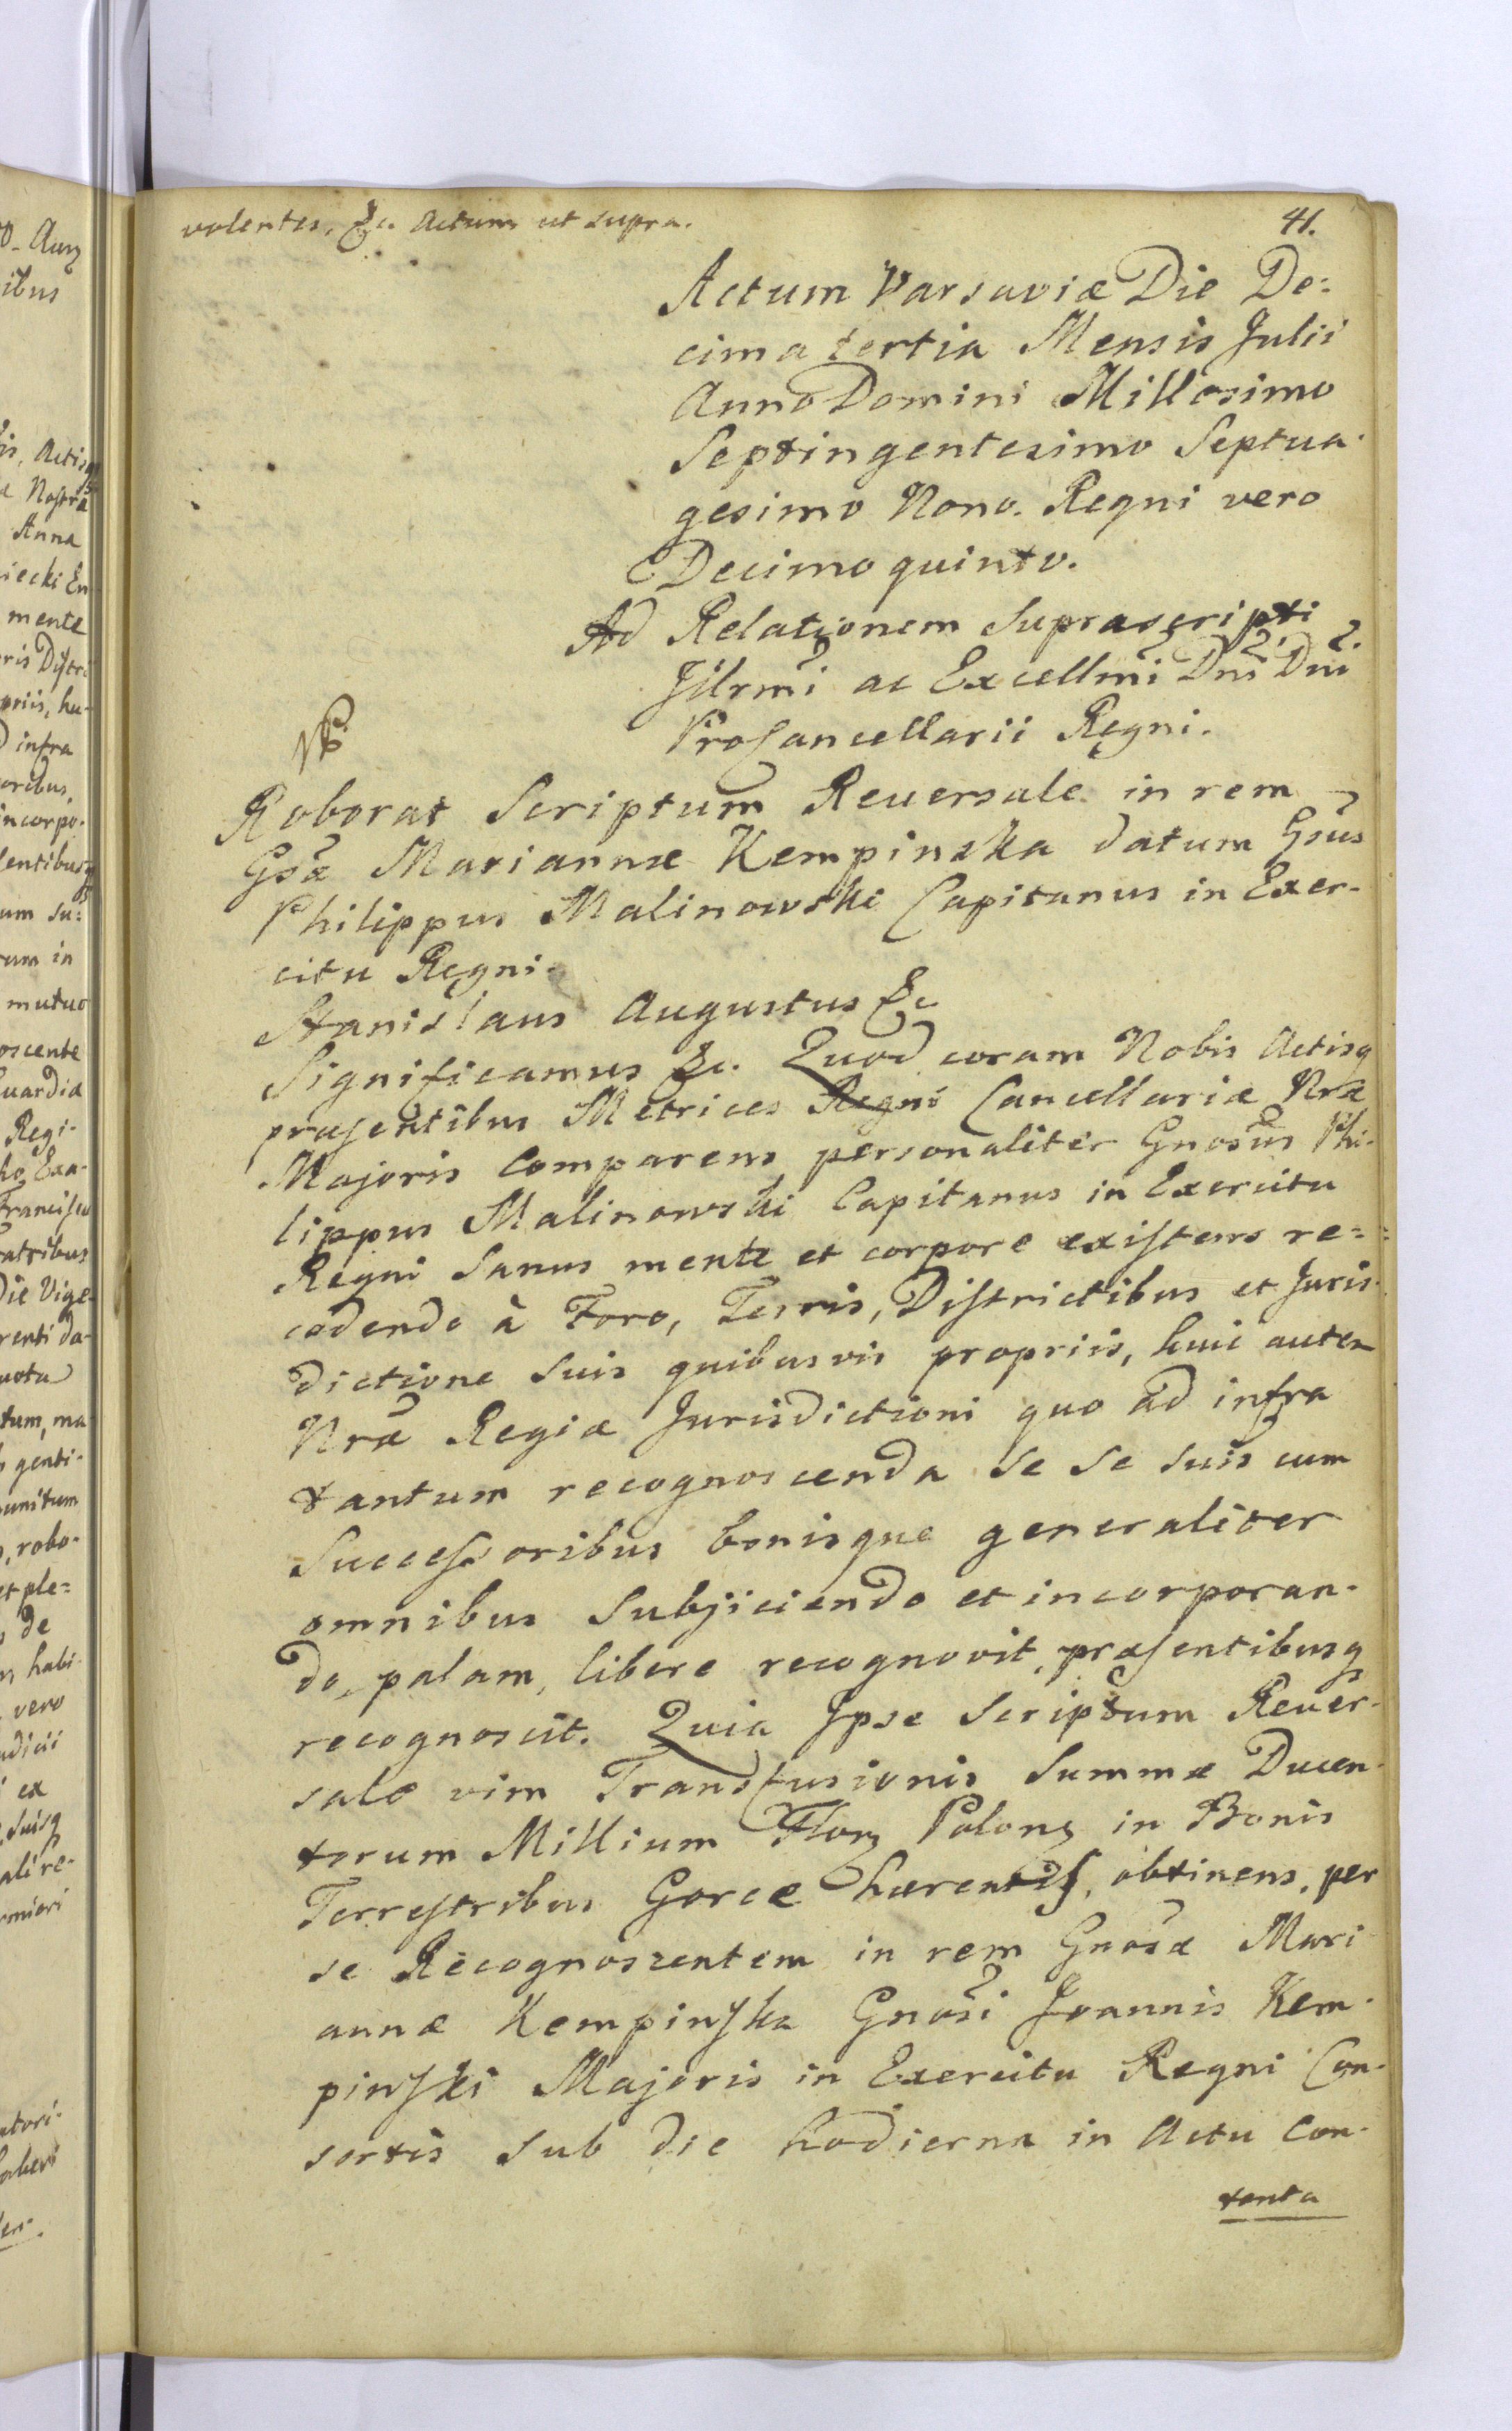 volentes, &c. Actum ut supra.
41.
Actum Varsaviæ Die De=
cima tertia Mensis Julii
Anno Domini Millesimo
Septingentesimo Septua-
gesimo Nono. Regni vero
Decimo quinto.
Ad Relationem Suprascripti
Jllrmi ac Excellmi Dni Dni
ProCancellarii Regni.
Roborat Scriptum Reuersale in rem
Gsæ Mariannæ Kempinska datum Gsus
Philippus Malinowski Capitanus in Exer-
citu Regni.
Stanislaus Augustus &c
Significamus &c. Quod coram Nobis Actisq
præsentibus Metrices Regni Cancellariæ Nræ
Majoris Comparens personaliter Gnosus Phi-
lippus Malinowski Capitanus in Exercitu
Regni Sanus mente et corpore existens re=
cedendo à Foro, Terris, Districtibus et Juris-
dictione Suis quibusvis propriis, huic autem
Nræ Regiæ Jurisdictioni quo ad infra
tantum recognoscenda Se Se Suis cum
Successoribus bonisque generaliter
omnibus Subjiciendo et incorporan-
do, palam, libere recognovit, præsentibusq
recognoscit. Quia Jpse Scriptum Reuer-
sale vim Transfusionis Summæ Ducen-
torum Millium Flor Polon in Bonis
Terrestribus Gorce hærentis, obtinens, per
se Recognoscentem in rem Gnosæ Mari
annæ Kempinska Gnosi Joannis Kem-
pinski Majoris in Exercitu Regni Con-
sortis Sub die hodierna in Actu Con-
tenta
0- Aur
ibus
is, Actisq
a Nostra
Anna
iecki En
mente
ris Distri
priis, hu-
infra
oribus,
incorpo-
sentibusq
um Su=
rum in
mutuo
oscente
uardiæ
Regi-
ho Exa-
Francisco
atribus
Die Vige-
renti da-
nota
tum, ma
genti-
unitum
, robo-
et ple=
de
habi-
vero
udicii
ex
suisq
ali re-
rmiori
atori-